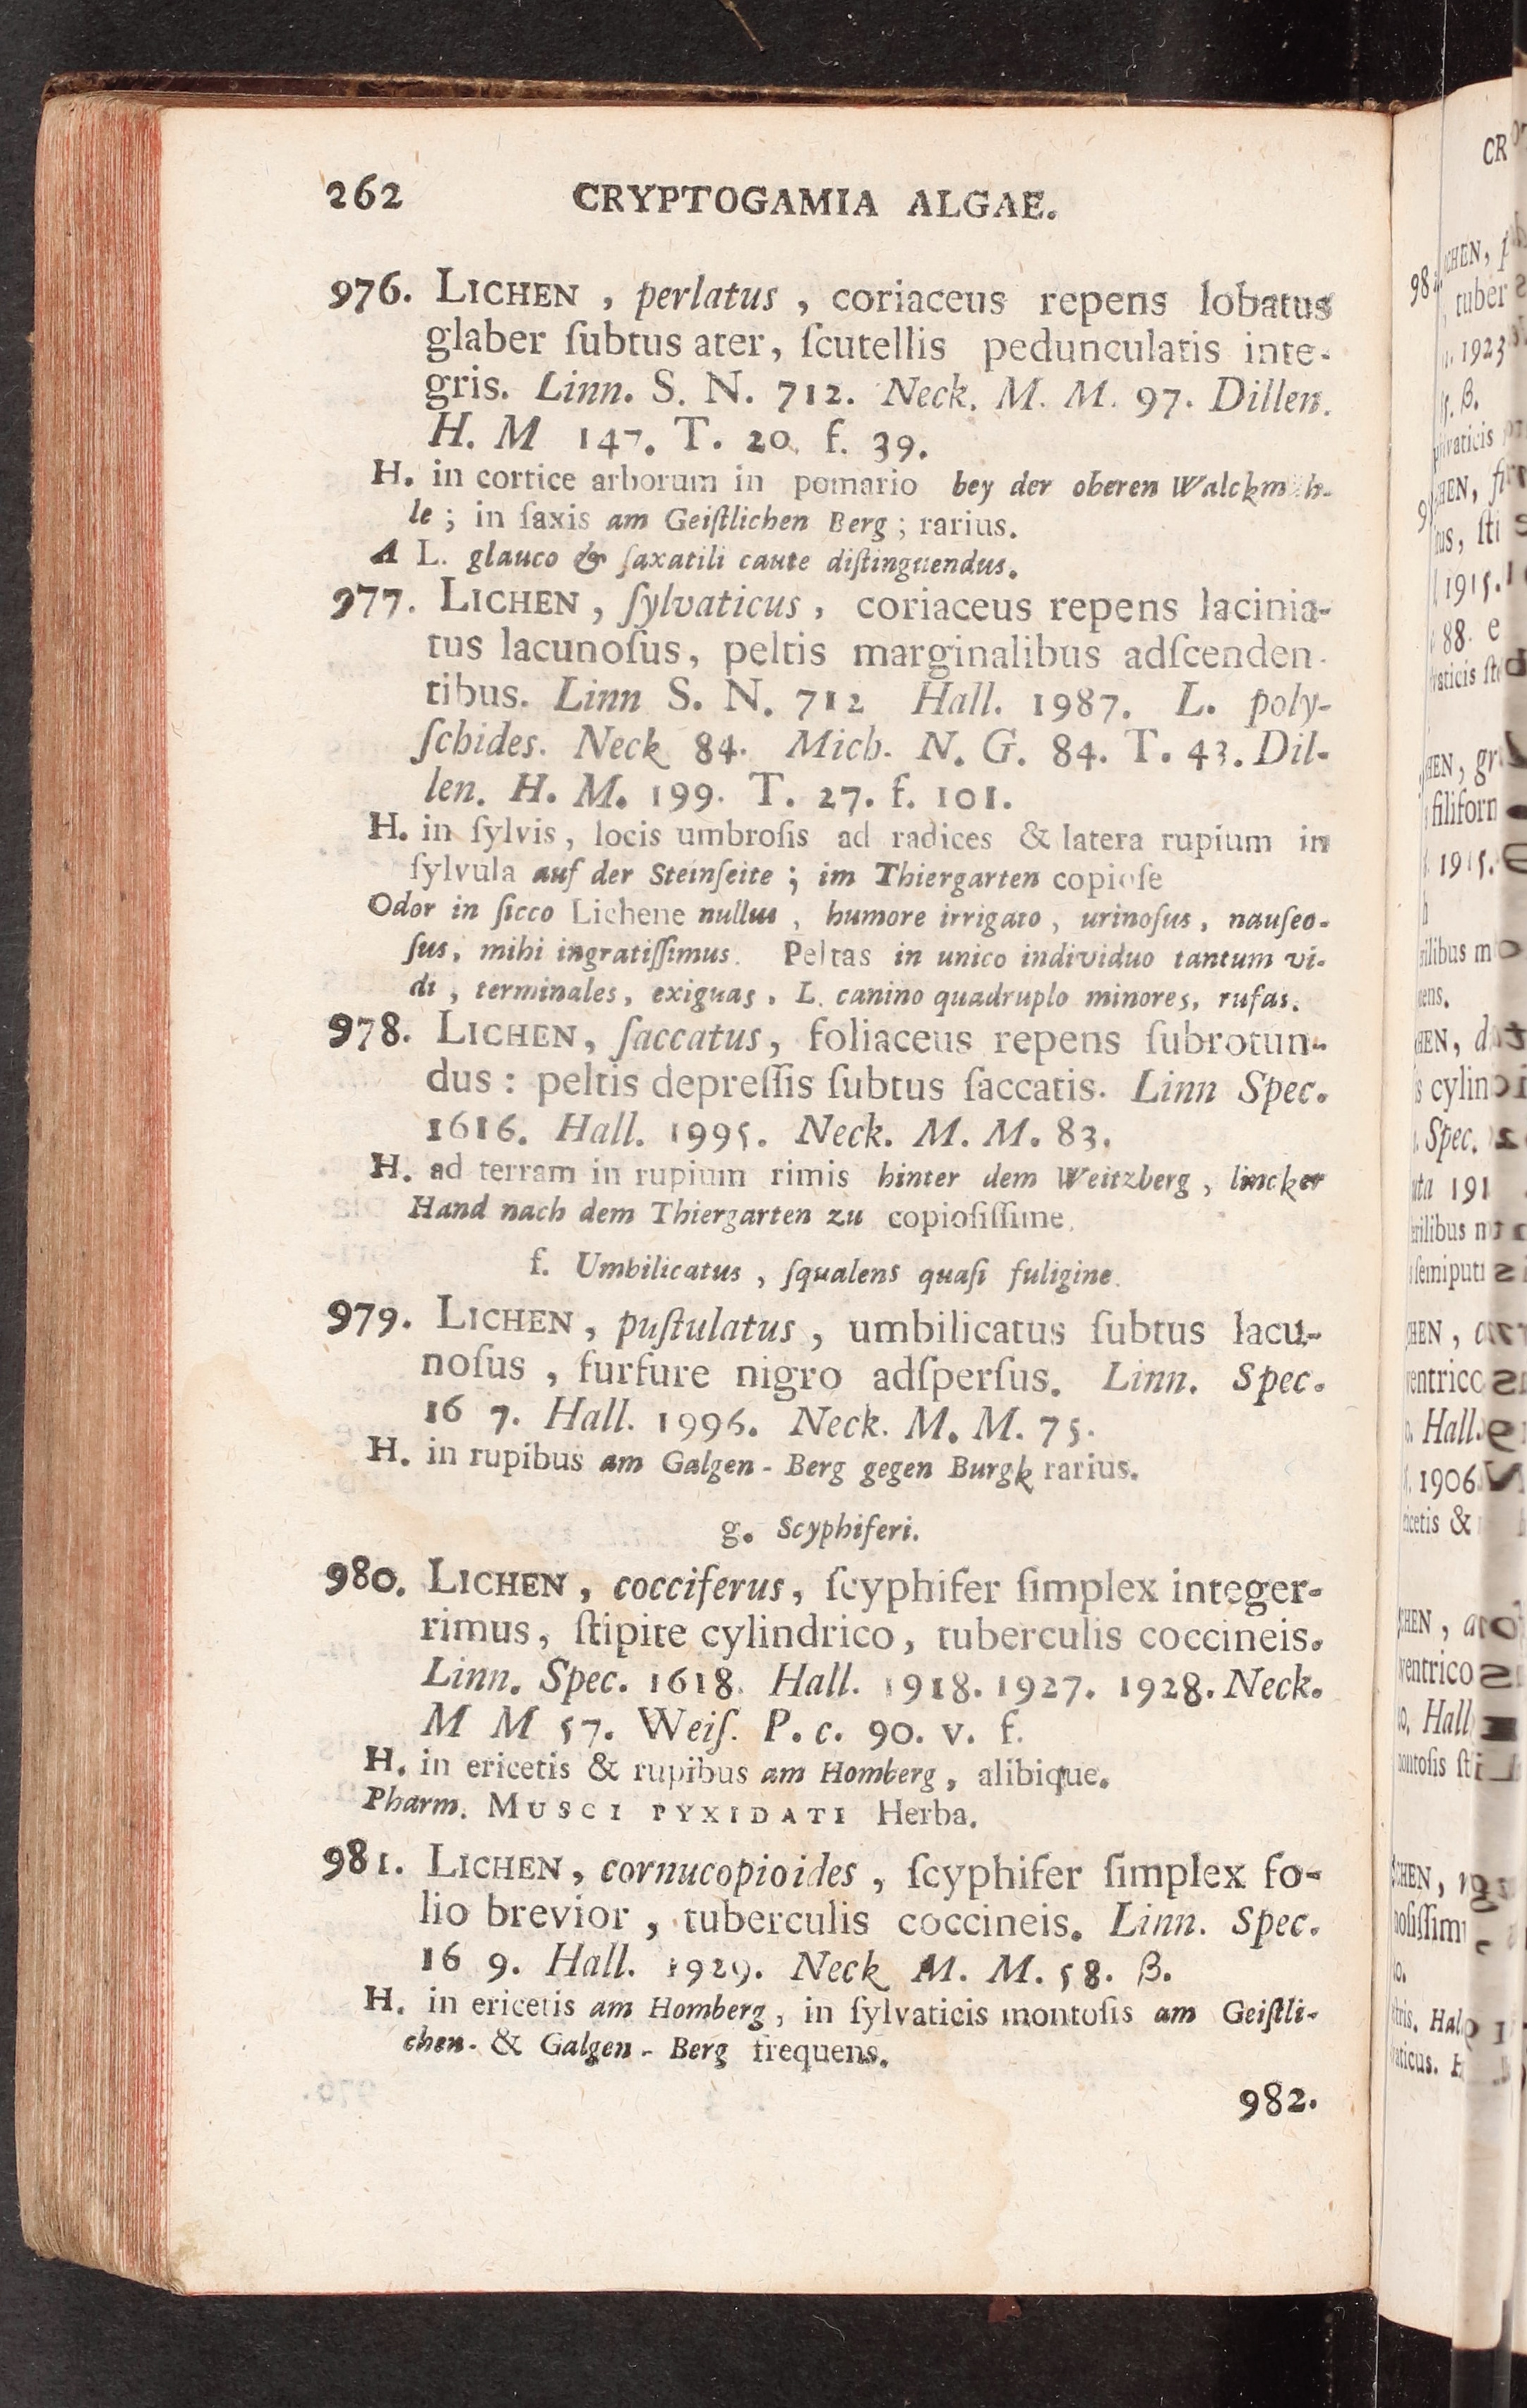 262 CRYPTOGAMIA ALGAE.
976. LICHEN, perlatus, coriaceus repens lobatus
glaber ſubtus ater, ſcutellis pedunculatis inte-
gris. Linn. S. N. 712. Neck. M. M. 97. Dillen.
H. M 147. T. 20. f. 39.
H. in cortice arborum in pomario bey der oberen
le; in ſaxis am Geiſtlichen Berg; rarius.
A L. glauco & ſaxatili caute diſtinguendus.
977. LICHEN, ſylvaticus, coriaceus repens lacinia-
tus lacunoſus, peltis marginalibus adſcenden-
tibus. Linn S. N. 712 Hall. 1987. L. poly-
ſchides. Neck 84. Mich. N. G. 84. T. 43. Dil-
len. H. M. 199. T. 27. f. 101.
H. in ſylvis, locis umbroſis ad radices & latera rupium in
ſylvula auf der Steinſeite; im Thiergarten copioſe
Odor in ſicco Lichene nullus, humore irrigato, urinoſus, nauſeo-
ſus, mihi ingratiſſimus. Peltas in unico individuo tantum vi-
di, terminales, exiguas, L. canino quadruplo minores, rufas.
978. LICHEN, ſaccatus, foliaceus repens ſubrotun-
dus: peltis depreſſis ſubtus ſaccatis. Linn Spec.
1616. Hall. 1995. Neck. M. M. 83.
H. ad terram in rupium rimis hinter dem Weitzberg, lincker
Hand nach dem Thiergarten zu copioſiſſime.
f. Umbilicatus, ſqualens quaſi fuligine.
979. LICHEN, puſtulatus, umbilicatus ſubtus lacu-
noſus, furfure nigro adſperſus. Linn. Spec.
16 7. Hall. 1996. Neck. M. M. 75.
H. in rupibus am Galgen-Berg gegen Burgk rarius.
g. Scyphiferi.
980. LICHEN, cocciferus, ſcyphifer ſimplex integer-
rimus, ſtipite cylindrico, tuberculis coccineis.
Linn. Spec. 1618. Hall. 1918. 1927. 1928. Neck.
M M 57. Weiſ. P. c. 90. v. f.
H. in ericetis & rupibus am Homberg, alibique.
Pharm. MUSCI PYXIDATI Herba.
981. LICHEN, cornucopioides, ſcyphifer ſimplex fo-
lio brevior, tuberculis coccineis. Linn. Spec.
16 9. Hall. 1929. Neck M. M. 58. β.
H. in ericetis am Homberg, in ſylvaticis montoſis am Geiſtli-
chen- & Galgen-Berg frequens.
982.